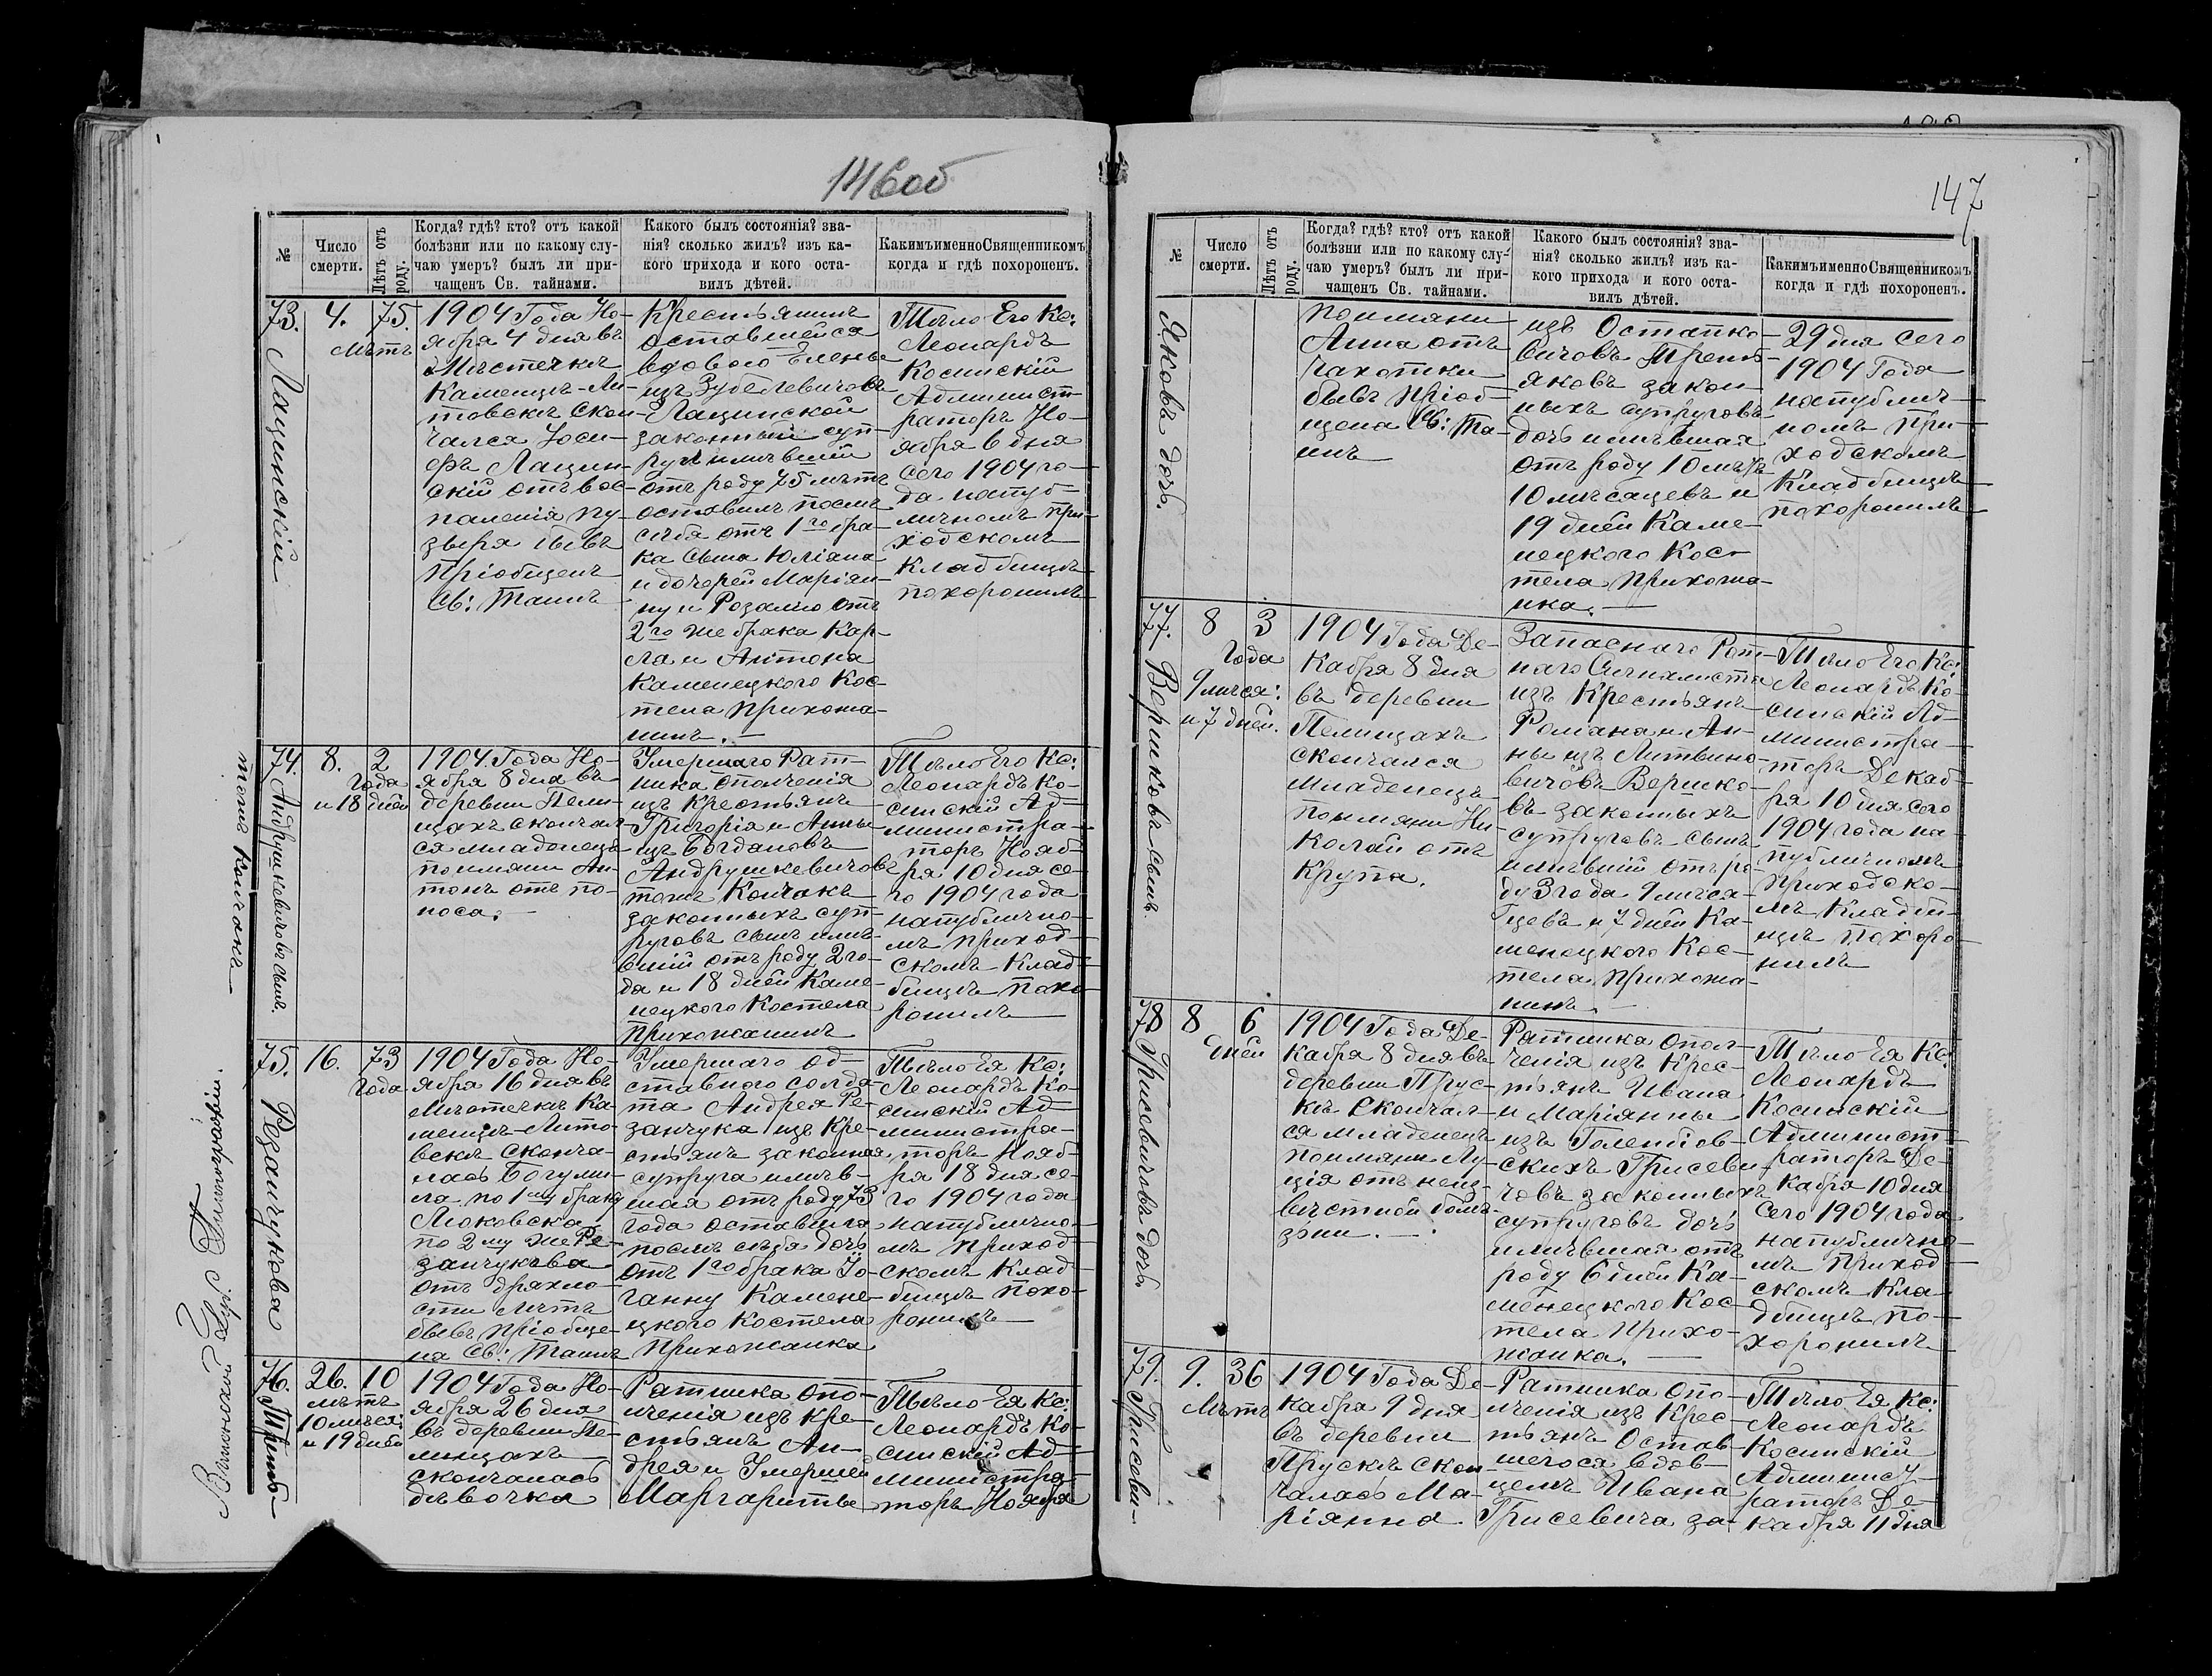 146об
№
Число смерти.
Лѣтъ отъ роду.
Когда? гдѣ? кто? отъ какой
болѣзни или по какому слу-
чаю умеръ? былъ ли при-
чащенъ Св. тайнами.
Какого былъ состоянія? зва-
нія? сколько жилъ? изъ ка-
кого прихода и кого оста-
вилъ дѣтей.
Какимъ именно Священникомъ
когда и гдѣ похороненъ.
73.
Лащинскій
4.
75.
Лѣтъ
1904 Года Но-
ября 4 дня въ
Мѣстечкѣ
Каменцѣ-Ли-
товскѣ Скон-
чался Іоси-
фъ Лащин-
скій отъ вос-
паленія пу-
зыря бывъ
Пріобщенъ
Св: Таинъ
Крестьянинъ
оставшейся
вдовою Елены
изъ
Лащинской
законный суп-
ругъ имѣвшій
отъ роду 75 лѣтъ
оставилъ послѣ
себя отъ 1го бра-
ка сына Юліана
и дочерей Маріян-
ну и Розалію отъ
2го же брака Кар-
ла и Антона
Каменецкого Кос-
тела Прихожа-
нинъ. —
Тѣло Его Кс:
Леонардъ
Косинскій
Админист-
раторъ Но-
ября 6 дня
сего 1904 го-
да напуб-
личномъ при-
ходскомъ
Кладбищѣ
похоронилъ
74.
Андрушкевичовъ сынъ.
тожъ Колчакъ
8.
2
Года
и 18 дней
1904 Года Но-
ября 8 дня въ
деревни Пели-
щахъ скончал-
ся младенецъ
поимяни Ан-
тонъ отъ по-
носа. —
Умершаго Рат-
ника ополченія
изъ Крестьянъ
Григорія и Анны
изъ Богдановъ
Андрушкевичовъ
тожъ Колчакъ
законныхъ суп-
руговъ сынъ имѣ-
вшій отъ роду 2 го-
да и 18 дней Каме-
нецкого Костела
Прихожанинъ
Тѣло Его Кс:
Леонардъ Ко-
синскій Ад-
министра-
торъ Нояб-
ря 10 дня се-
го 1904 года
напублично-
мъ приход-
скомъ Клад-
бищѣ похо-
ронилъ
75.
Рѣзанчукова
16.
73
Года
1904 Года Но-
ября 16 дня въ
Мѣстечкѣ Ка-
менцѣ-Лито-
вскѣ Сконча-
лась Богуми-
ла по 1му браку
по 2му же Ре-
занчукова
отъ дряхло-
сти лѣтъ
бывъ пріобще-
на Св: Таинъ
Умершаго от-
ставного солда-
та Андрея Ре-
занчука изъ Кре-
стьянъ законная
супруга имѣв-
шая отъ роду 73
Года оставила
послѣ себя дочь
отъ 1го брака Іо-
ганну Камене-
цкого Костела
Прихожанка
Тѣло Ея Кс:
Леонардъ Ко-
синскій Ад-
министра-
торъ Нояб-
ря 18 дня се-
го 1904 года
напублично-
мъ приход-
скомъ Клад-
бищѣ похо-
ронилъ
76.
Трень-
26.
10
лѣтъ
10 мѣся:
и 19 дней
1904 Года Но-
ября 26 дня
въ деревни Пе-
лищахъ
скончалась
дѣвочка
Ратника опо-
лченія изъ Кре-
стьянъ Ан-
дрея и Умершей
Маргариты
Тѣло Ея Кс:
Леонардъ Ко-
синскій Ад-
министра-
торъ Ноября
Виленской Губ. Типографіи.
147
№
Число смерти.
Лѣтъ отъ роду.
Когда? гдѣ? кто? отъ какой
болѣзни или по какому слу-
чаю умеръ? былъ ли при-
чащенъ Св. тайнами.
Какого былъ состоянія? зва-
нія? сколько жилъ? изъ ка-
кого прихода и кого оста-
вилъ дѣтей.
Какимъ именно Священникомъ
когда и гдѣ похороненъ.
Яковъ дочь.
поимяни
Анна отъ
чахотки
бывъ пріоб-
щена Св: Та-
инъ
изъ Остапко-
вичовъ Трень-
яковъ закон-
ныхъ супруговъ
дочь имѣвшая
отъ роду 10 лѣтъ
10 мѣсяцевъ и
19 дней Каме-
нецкого Кос-
тела прихожа-
нка. —
29 дня сего
1904 Года
напублич-
номъ При-
ходскомъ
Кладбищѣ
похоронилъ
77.
Вершковъ сынъ.
8
3
Года
9 мѣся:
и 7 дней.
1904 Года Де-
кабря 8 дня
въ деревни
Пелищахъ
скончался
Младенецъ
поимяни Ни-
колай отъ
Крупа.
Запаснаго Рот-
наго Сигналиста
изъ Крестьянъ
Романа и Ан-
ны изъ Литвино-
вичовъ Вершко-
въ законныхъ
супруговъ сынъ
имѣвшій отъ ро-
ду 3 года 9 мѣся-
цевъ и 7 дней Ка-
менецкого Кос-
тела Прихожа-
нинъ. —
Тѣло Его Кс:
Леонардъ Ко-
синскій Ад-
министра-
торъ Декаб-
ря 10 дня сего
1904 года на-
публичномъ
приходско-
мъ Кладби-
щѣ похоро-
нилъ
78
Грисевичовъ дочь.
8
6
дней
1904 Года Де-
кабря 8 дня въ
деревни Прус-
кѣ Скончал-
ся младенецъ
поимяни Лу-
ція отъ неиз-
вѣстной болѣ-
зни. —
Ратника Опол-
ченія изъ Крес-
тьянъ Ивана
и Маріянны
изъ Голембов-
скихъ Грисеви-
човъ законныхъ
супруговъ дочь
имѣвшая отъ
роду 6 дней Ка-
менецкого Кос-
тела Прихо-
жанка. —
Тѣло Ея Кс:
Леонардъ
Косинскій
Админист-
раторъ Де-
кабря 10 дня
Сего 1904 года
напублично-
мъ Приход-
скомъ Кла-
дбищѣ по-
хоронилъ
79.
Грисеви-
9.
36
Лѣтъ
1904 Года Де-
кабря 9 дня
въ деревни
Прускѣ Скон-
чалась Ма-
ріянна
Ратника Опо-
лченія изъ Крес-
тьянъ Остав-
шегося вдов-
цемъ Ивана
Грисевича за-
Тѣло Ея Кс:
Леонардъ
Косинскій
Админист-
раторъ Де-
кабря 11 дня